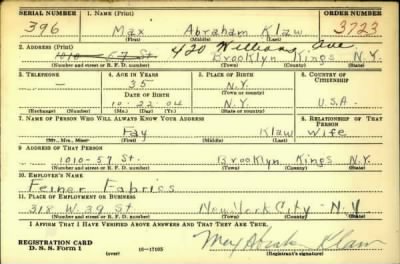 SERIAL NUMBER 1. NAME (Print) ORDER NUMBER
396 Max Abraham Klaw 3723
(First) (Middle) (Last)
2. ADDRESS (Print) 420 Williams Ave
1010 - 57 St. Brooklyn Kings N.Y.
(Number and street or R. F. D. number) (Town) (County) (State)
3. TELEPHONE 4. AGE IN YEARS 5. PLACE OF BIRTH 6. COUNTRY OF CITIZENSHIP
- 35 N.Y.
DATE OF BIRTH (Town or county)
10-22-04 N.Y. U.S.A.
(Exchange) (Number) (Mo.) (Day) (Yr.) (State or country)
7. NAME OF PERSON WHO WILL ALWAYS KNOW YOUR ADDRESS 8. RELATIONSHIP OF THAT PERSON
Fay Klaw Wife
(Mr., Mrs., Miss) (First) (Middle) (Last)
9. ADDRESS OF THAT PERSON
1010-57 St. Brooklyn Kings N.Y.
(Number and street or R. F. D. number) (Town) (County) (State)
10. EMPLOYER'S NAME
Feiner Fabrics
11. PLACE OF EMPLOYMENT OR BUSINESS
318 W. 39 St. New York City - N.Y
(Number and street or R. F. D. number) (Town) (County) (State)
I AFFIRM THAT I HAVE VERIFIED ABOVE ANSWERS AND THAT THEY ARE TRUE.
REGISTRATION CARD
D. S. S. Form 1 (over) 16-17105 Max Abraham Klaw
(Registrant's signature)